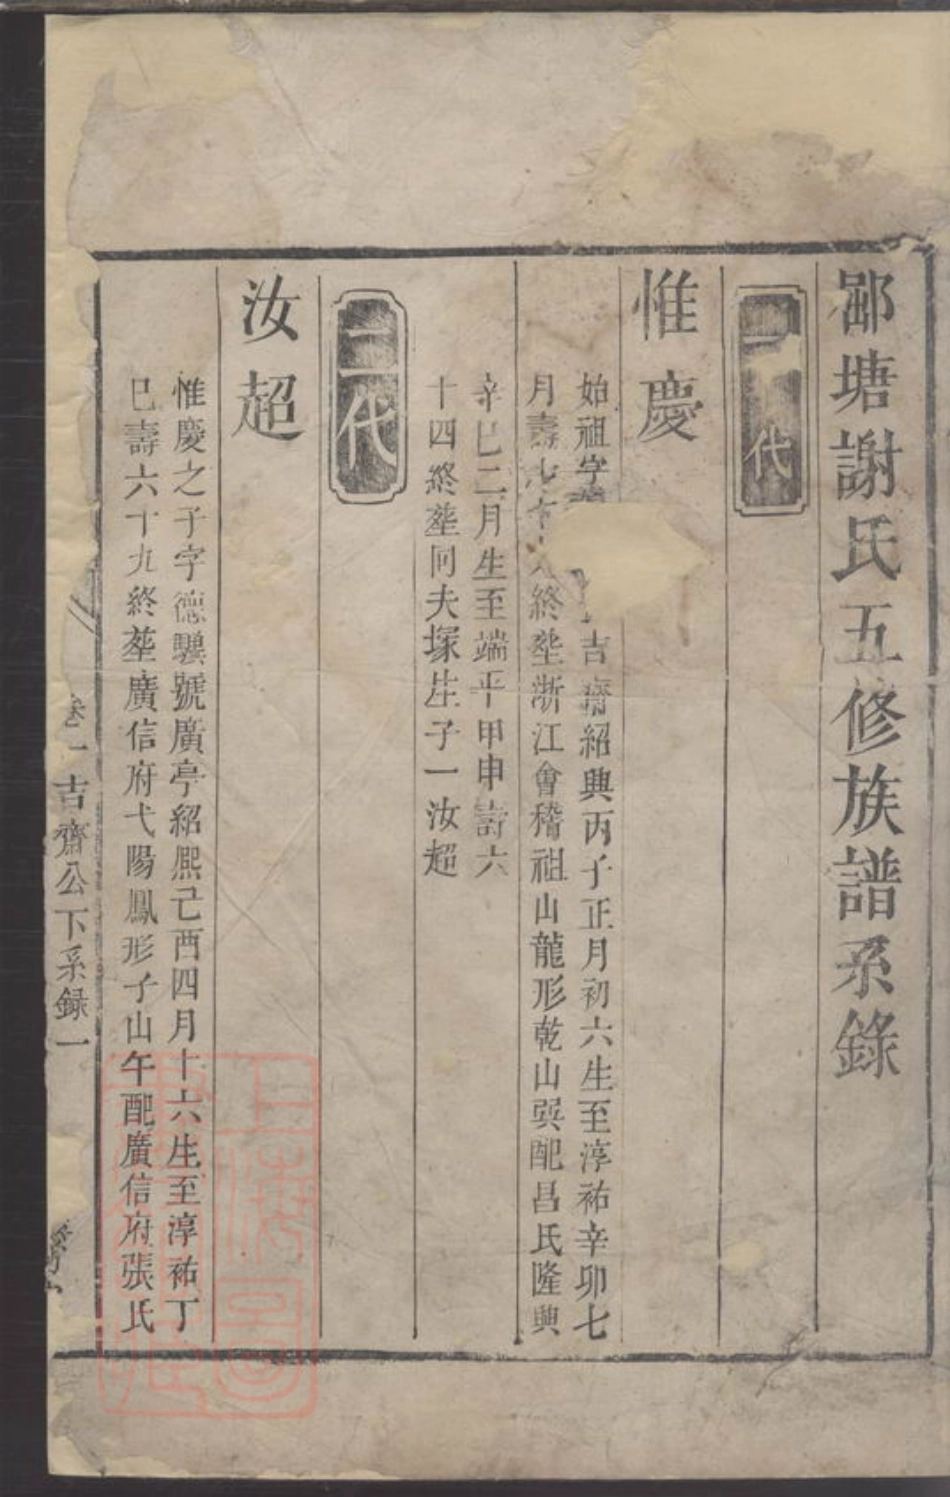 鄒塘謝氏五修族譜系錄
一代
惟慶
始祖字 吉齋紹興丙子正月初六生至淳祐辛卯七
月壽七十 終塟浙江會稽祖山龍形乾山巽配昌氏隆興
辛巳二月生至端平甲申壽六
十四終塟同夫塚生子一汝超
二代
汝超
惟慶之子字德驥號廣亭紹熙己酉四月十六生至淳祐丁
巳壽六十九終塟廣信府弋陽鳳形子山午配廣信府張氏
卷一 吉齋公下系録一
上海圖書館藏